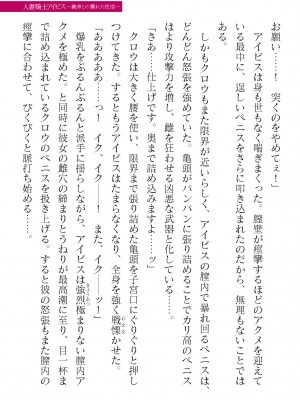 人妻騎士アイビス～義弟との爛れた性活～
お願い……！　突くのをやめてぇーッ！」
　アイビスは身も世もなく喘ぎまくった。膣壁が痙攣するほどのアクメを迎えて
いる最中に、逞しいペニスをさらに叩き込まれたのだから、無理もないことでは
ある。
　しかもクロウもまた限界が近いらしく、アイビスの膣内で暴れ回るペニスは、
どんどん怒張を強めていた。亀頭がパンパンに張り詰めることでカリ高のペニス
はより攻撃力を増し、雌を狂わせる凶悪な武器と化している……。
「さあ……仕上げです。奥まで詰め込みますよ……ッ」
　クロウは大きく腰を使い、限界まで張り詰めた亀頭を子宮口にぐりぐりと押し
つけてきた。するともうアイビスはたまらなくなり、全身を強く戦慄かせた。
「あああああ……ッ！　イク、イクーーッ！　また、イクーーッ！」
　爆乳をぶるんぶるんと派手に揺らしながら、アイビスは強烈極まりない膣内ア
クメを極めた。と同時に彼女の雌穴の締まりとうねりが最高潮に至り、目一杯ま
で詰め込まれているクロウのペニスを扱き上げる。すると彼の怒張もまた膣内の
痙攣に合わせて、びくびくと脈打ち始める……。